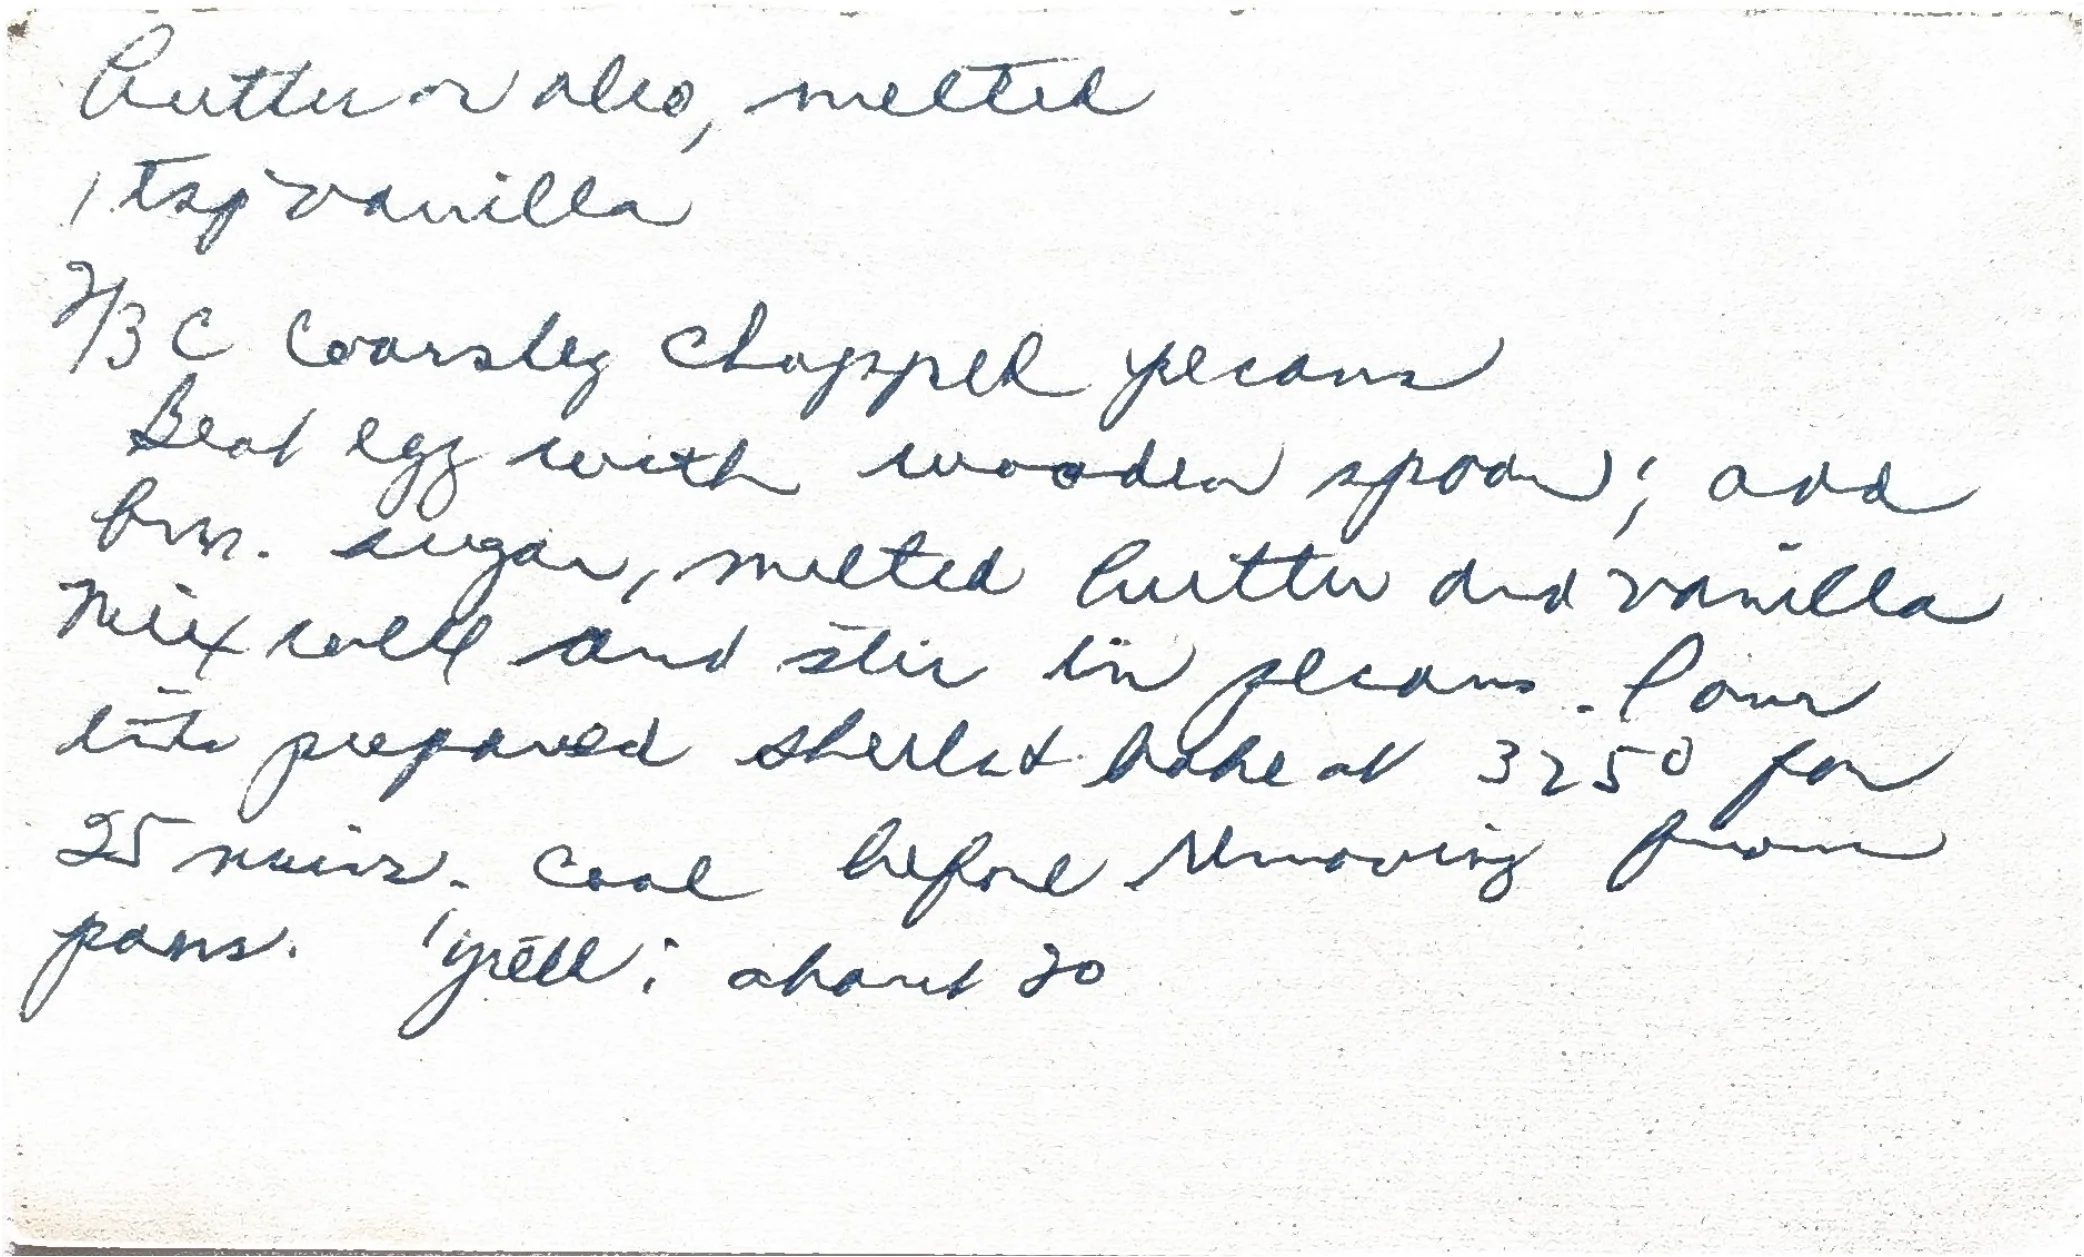 Butter or oleo, melted
1 tsp vanilla
2/3 C Coarsley Chopped pecans
Beat egg with wooden spoon; add
brn. sugar, melted butter and vanilla
Mix well and stir in pecans. Pour
into prepared shells & bake at 325° for
25 mins. Cool before removing from
pans. Yield: about 20